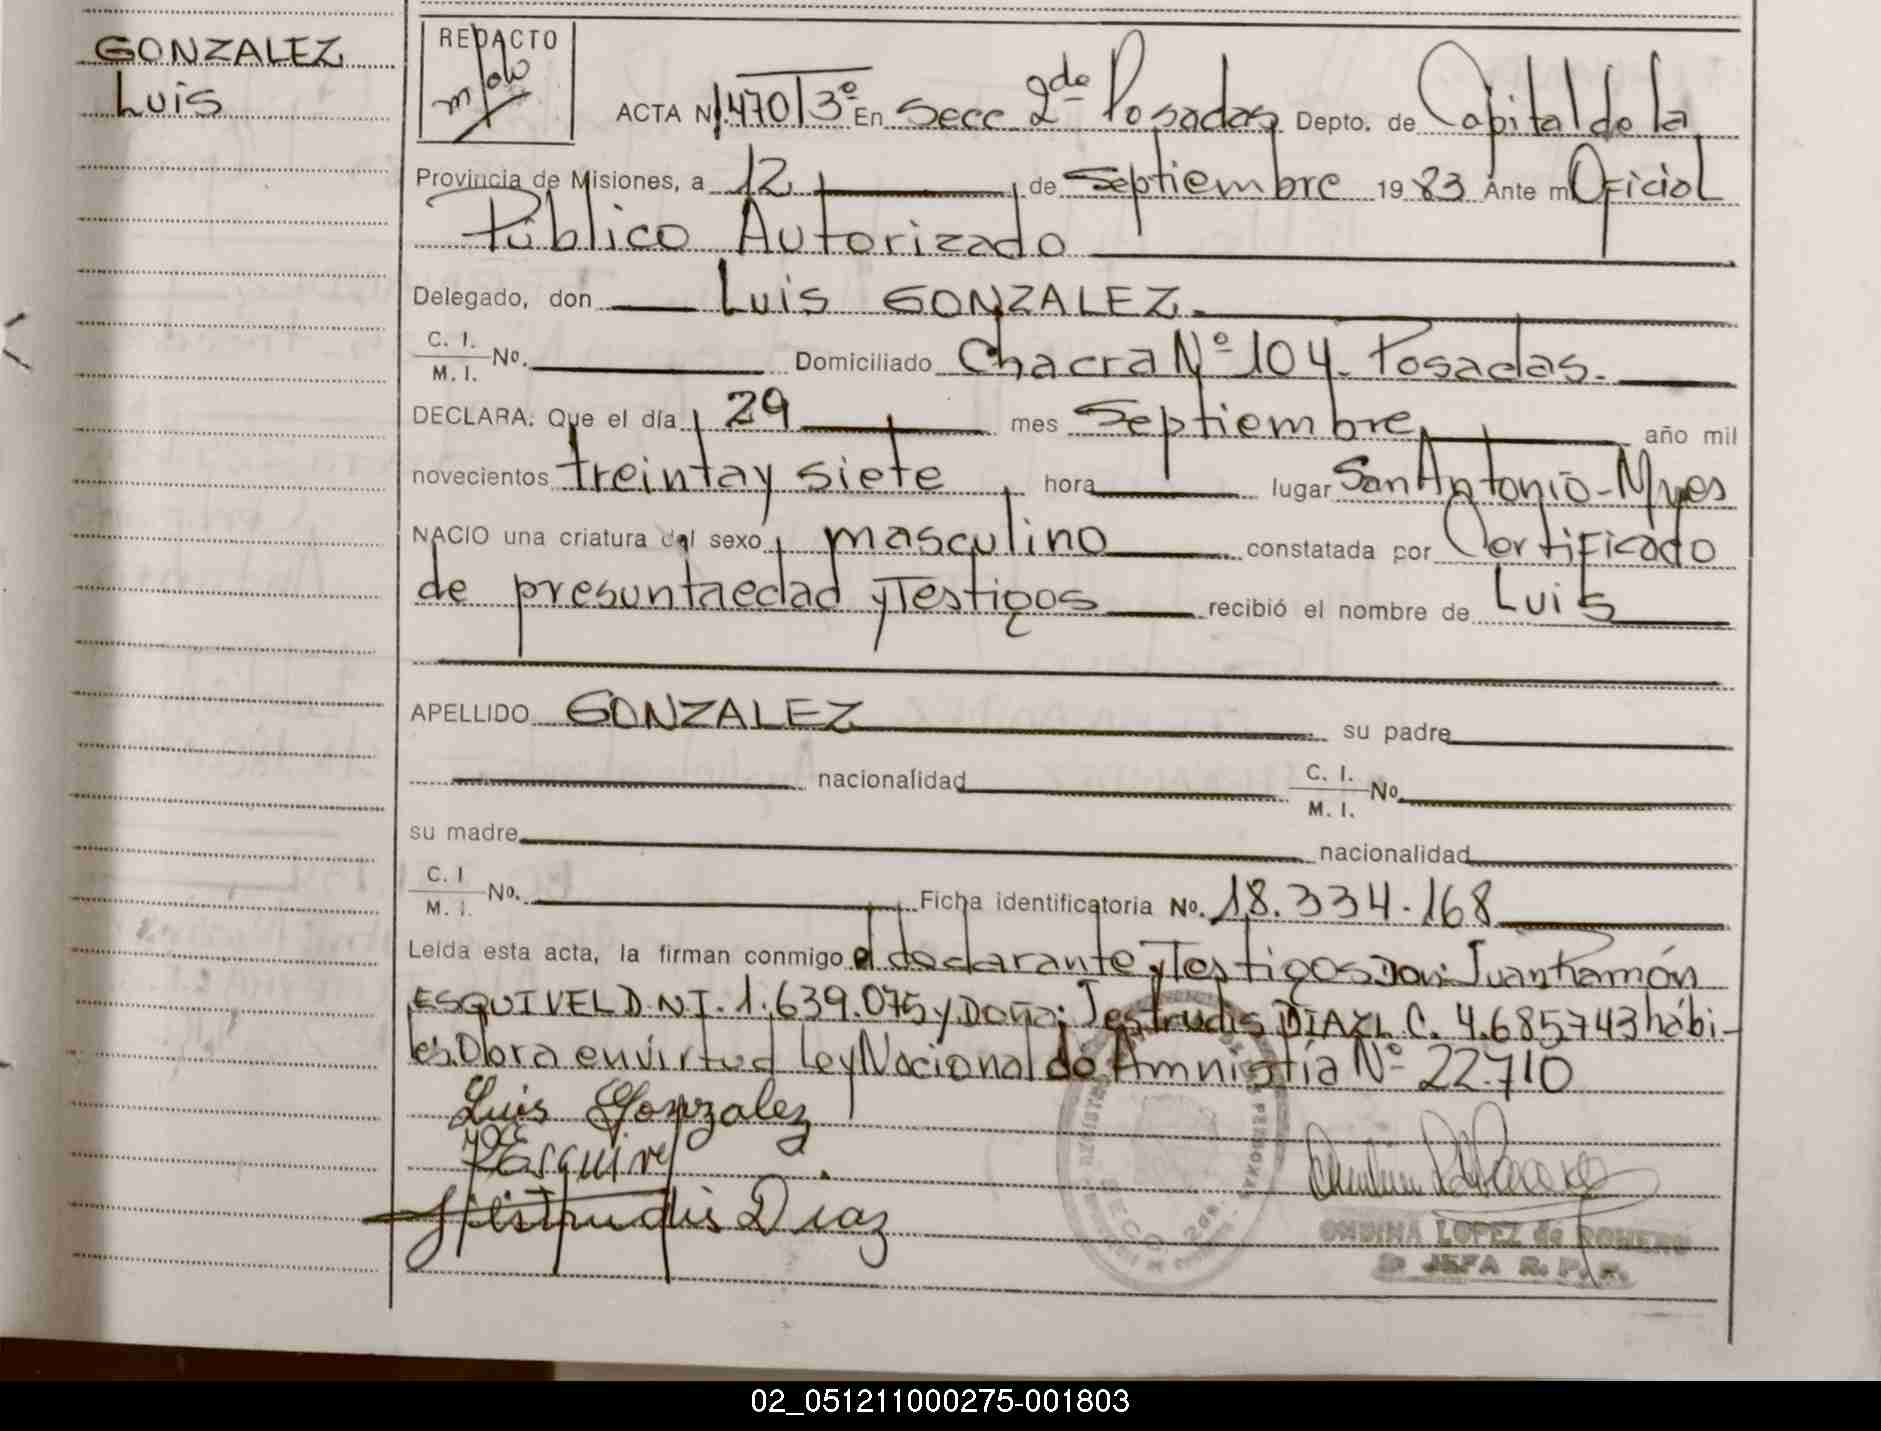 GONZALEZ
Luis
REDACTO
ACTA N 1.470 T 3º En Secc 2da Posadas Depto. de Capital de la
Provincia de Misiones, a 12 de Septiembre 19 83 Ante mi Oficial
Público Autorizado
Delegado, don Luis GONZALEZ.
C. I.
M. I. No. Domiciliado Chacra Nº 104. Posadas.
DECLARA: Que el día 29 mes Septiembre año mil
novecientos treinta y siete hora lugar San Antonio - Mnes
NACIO una criatura del sexo masculino constatada por Certificado
de presunta edad y Testigos recibió el nombre de Luis
APELLIDO GONZALEZ su padre
nacionalidad C. I.
M. I. No.
su madre nacionalidad
C. I
M. I. No. Ficha identificatoria No. 18.334.168
Leída esta acta, la firman conmigo el declarante y Testigos Don: Juan Ramón
ESQUIVEL D.N.I. 1.639.075 y Doña: Jestrudis DIAZ L.C. 4.685743 hábi-
les. Obra en virtud Ley Nacional de Amnistía Nº 22.710
Luis Gonzalez
Esquivel
Jestrudis Diaz
ONDINA LOPEZ de ROMERO
JEFA R. P.
02_051211000275-001803